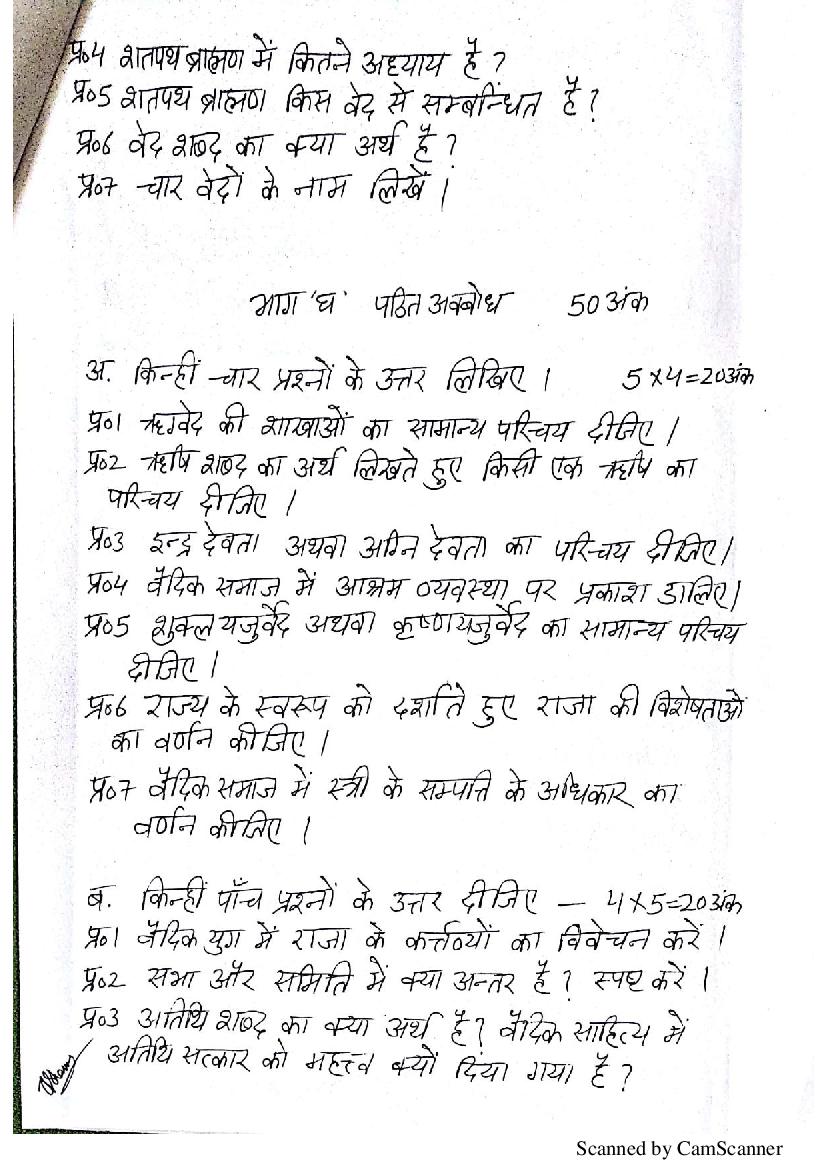 प्र०4 शतपथ ब्राह्मण में कितने अध्याय है ?
प्र०5 शतपथ ब्राह्मण किस वेद से सम्बन्धित है ?
प्र०6 वेद शब्द का क्या अर्थ है ?
प्र०7 चार वेदों के नाम लिखें ।
भाग 'घ' पठित अवबोध 50 अंक
अ. किन्हीं चार प्रश्नों के उत्तर लिखिए । 5×4=20अंक
प्र०1 ऋग्वेद की शाखाओं का सामान्य परिचय दीजिए ।
प्र०2 ऋषि शब्द का अर्थ लिखते हुए किसी एक ऋषि का
परिचय दीजिए ।
प्र०3 इन्द्र देवता अथवा अग्नि देवता का परिचय दीजिए ।
प्र०4 वैदिक समाज में आश्रम व्यवस्था पर प्रकाश डालिए ।
प्र०5 शुक्लयजुर्वेद अथवा कृष्णयजुर्वेद का सामान्य परिचय
दीजिए ।
प्र०6 राज्य के स्वरूप को दर्शाते हुए राजा की विशेषताओं
का वर्णन कीजिए ।
प्र०7 वैदिक समाज में स्त्री के सम्पत्ति के अधिकार का
वर्णन कीजिए ।
ब. किन्हीं पाँच प्रश्नों के उत्तर दीजिए – 4×5=20अंक
प्र०1 वैदिक युग में राजा के कर्त्तव्यों का विवेचन करें ।
प्र०2 सभा और समिति में क्या अन्तर है ? स्पष्ट करें ।
प्र०3 अतिथि शब्द का क्या अर्थ है ? वैदिक साहित्य में
अतिथि सत्कार को महत्त्व क्यों दिया गया है ?
Scanned by CamScanner